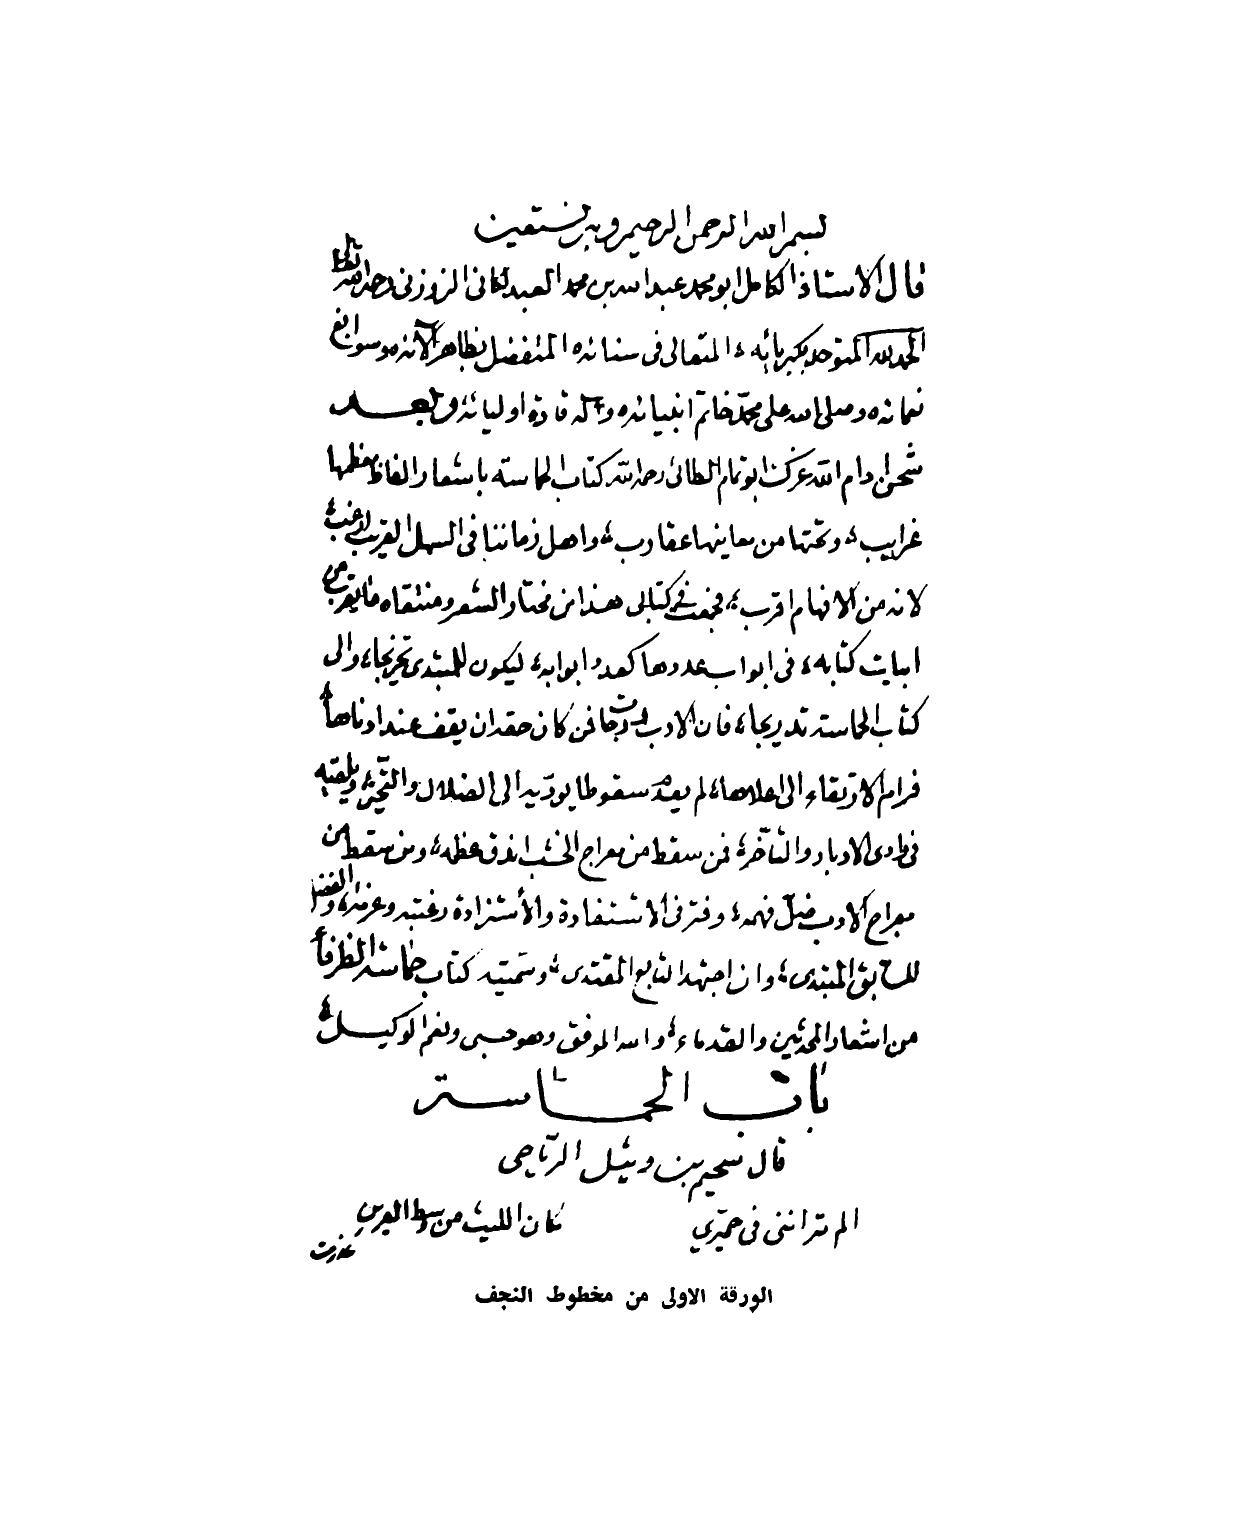 بسم الله الرحمن الرحيم وبه نستعين
قال الاستاذ الكامل ابو محمد عبد الله بن محمد العبدلكاني الزوزني رحمه الله تعالى
الحمد لله المتوحد بكبريائه، المتعالي في سنائه المتفضل بظاهر آلائه وسوابغ
نعمائه وصلى الله على محمد خاتم انبيائه وآله قادة اوليائه وبعد
شحن ادام الله عزك ابو تمام الطائي رحمه الله كتاب الحماسة باشعار الفاظ معظمها
غرايب، وتحتها من معاينها عقارب، واهل زماننا في السهل القريب ارغب،
لانه من الافهام اقرب، فجمعت في كتابي هذا من مختار الشعر ومنتقاه ما يقرب من
ابيات كتابه، في ابواب عددها كعدد ابوابه، ليكون للمبتدى تخريجا، والى
كتاب الحماسة تدريجا، فان الادب درجات فمن كان حقه ان يقف عند ادناها
فرام الارتقاء الى اعلاها، لم يعد سقوطا يوديه الى الضلال والتحير، ويلقيه
في الادبار والتأخر، فمن سقط من معراج الخشب اندق عظمه، ومن سقط من
معراج الادب ضل فهمه، وفتر في الاستفادة والأستزادة رغبته وعزمه، والفضل
للسابق المبتدى، وان اجتهد التابع المقتدى، وسميته كتاب حماسة الظرفا
من اشعار المحدثين والقدماء، والله الموفق وهو حسبى ونعم الوكيل،
باب الحماسة
قال سحيم بن وثيل الرياحى
الم تر اننى فى حميري    مكان الليث من وسط العرين
عذرت
الورقة الاولى من مخطوط النجف